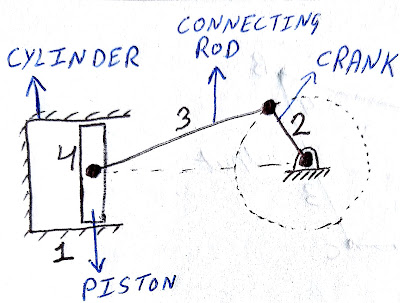 CONNECTING
ROD
CYLINDER
CRANK
3
2
4
1
PISTON